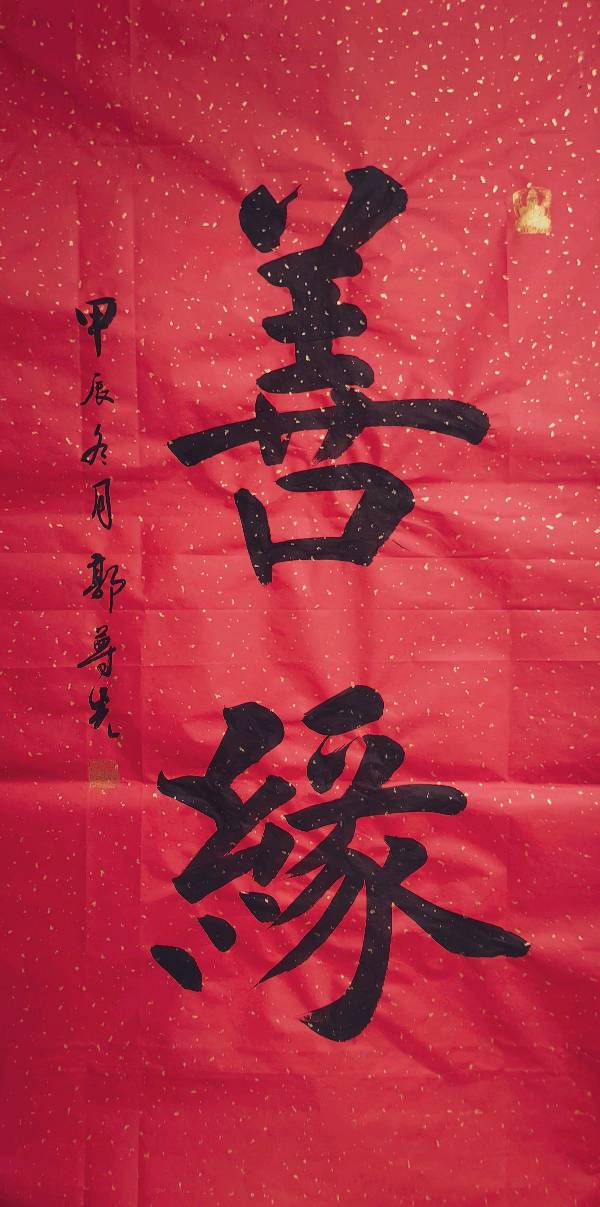 善緣
甲辰冬月 郭尊先